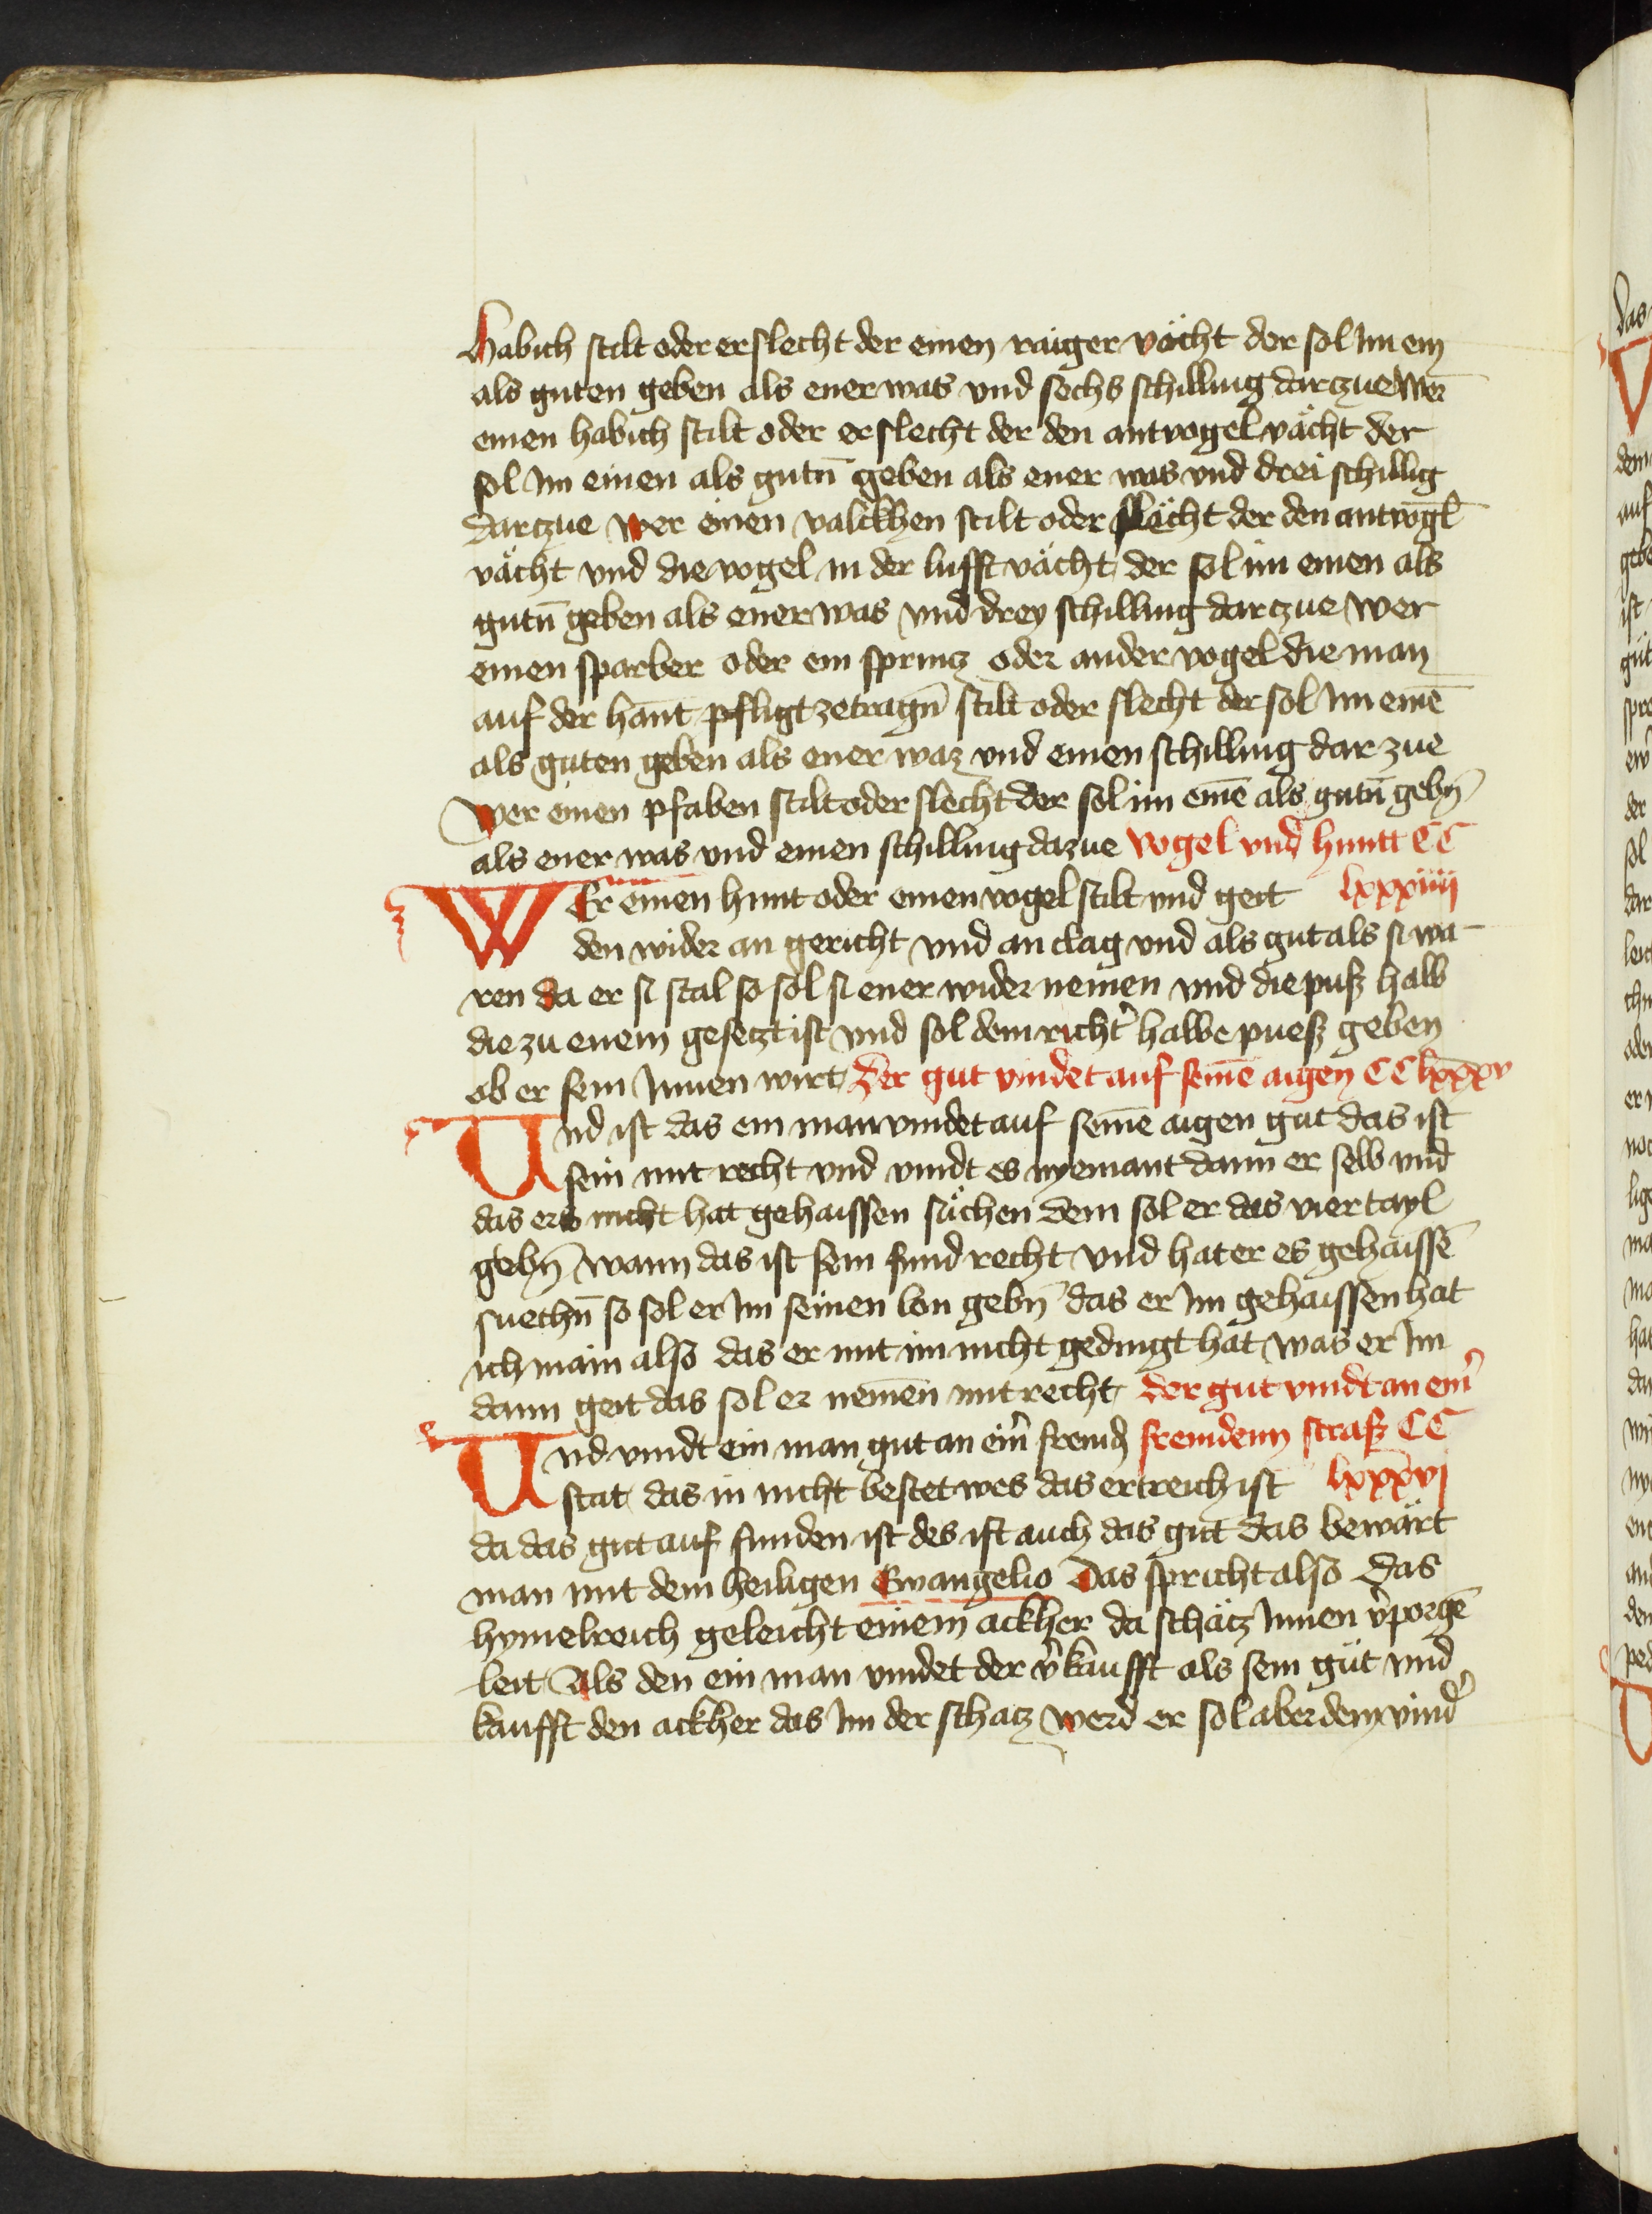 Habich stilt oder erslecht der einen raiger vächt der sol Im ein
als guten geben als ener was vnd sechs schilling darczue Wer
einen habich stilt oder erslecht der den antvogel vächt der
sol Im einen als gutn̄ geben als ener was vnd drei schillig
darczue wer einen valckhen stilt oder slächt der den antvogl̄
vächt vnd die vogel in der lufft vächt der sol im einen als
gutn̄ geben als ener was vnd drey schilling darczue wer
einen sparber oder ein sprincz oder ander vogel die man
auf der hant pfligt zetragn̄ stilt oder slecht der sol Im einē
als guten geben als ener waz vnd einen schilling dar zue
Wer einen pfaben stilt oder slecht der sol im einē als gutn̄ gebn̄
als ener was vnd einen schilling dazue vogel vnd huntt CC
WEr einen hunt oder einen vogel stilt vnd geit lxxxiiij
den wider an gericht vnd an clag vnd als gut als si wa¬
ren da er si stal so sol si ener wider nemen vnd die puß halb
die zu enem gesetzt ist vnd sol dem richt̉ halbe pueß geben
ob er sein Innen wirt Der gut vindet auf seinē aigen CC lxxxv
Vnd ist das ein man vindet auf seinē aigen gut das ist
sein mit recht vnd vindt es nyemant dann er selb vnd
das ers nicht hat gehaissen süchen dem sol er das viertayl
gebn̄ wann das ist sein fund recht vnd hat er es gehaissē
suechn̄ so sol er Im seinen lon gebn̄ das er Im gehaissen hat
ich main also das er mit im nicht gedingt hat was er Im
dann geit das sol er nemen mit recht der gut vindt an ein̉
Vnd vindt ein man gut an ein̉ fremd̉ fremdenn straß CC
stat das in nicht bestet wes das ertreich ist lxxxvj
da das gut auf funden ist des ist auch das gut das bewärt
man mit dem heiligen Ewangelio Das spricht also das
hymelreich geleicht einem ackher da schätz Innen v̉porgē
leit Als den ein man vindet der v̉kaufft als sein gut vnd
kaufft den ackher das Im der schatz werd er sol aber dem vind̉